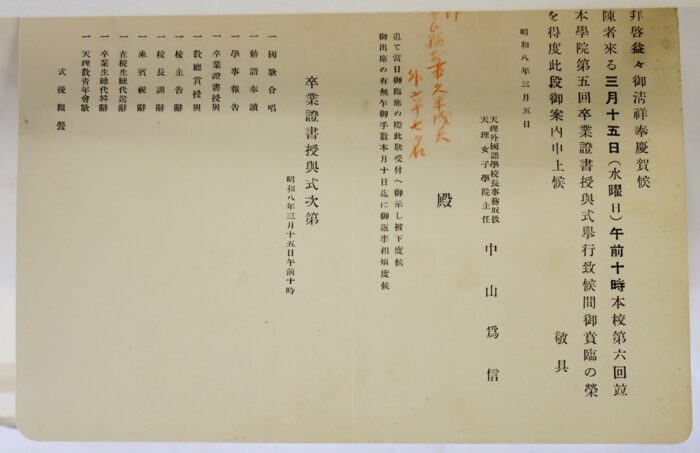 拜啓益々御淸祥奉慶賀候
陳者來る三月十五日(水曜日)午前十時本校第六回竝
本學院第五回卒業證書授與式擧行致候間御賁臨の榮
を得度此段御案內申上候
敬具
昭和八年三月五日
天理外國語學校長事務取扱
天理女子學院主任
中山爲信
殿
追て當日御臨席の際此狀受付へ御示し被下度候
御出席の有無乍御手數本月十日迄に御返事相煩度候
卒業證書授與式次第
昭和八年三月十五日午前十時
一國歌合唱
一勅語奉讀
一學事報告
一卒業證書授與
一敎廳賞授與
一校主告辭
一校長訓辭
一來賓祝辭
一在校生總代送辭
一卒業生總代答辭
一天理敎靑年會歌
式後粗餐